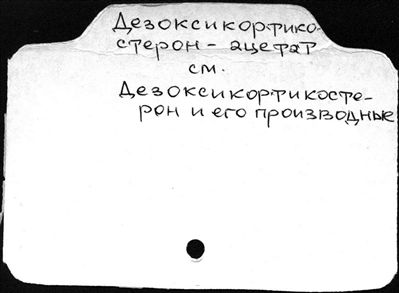 Дезоксикортико-
стерон - ацетат
см.
Дезоксикортикосте-
рон и его производные